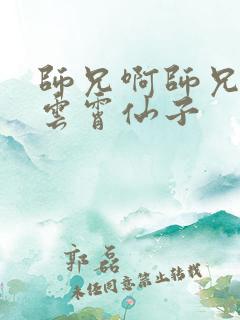 師兄啊師兄
雲霄仙子
郭磊
未經同意禁止轉載